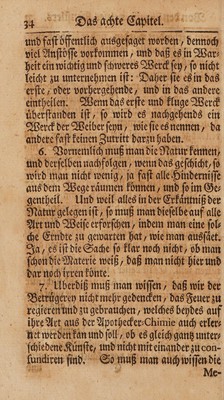 34 Das achte Capitel.
und fast öffentlich ausgesaget worden, dennoch
viel Anstösse vorkommen, und daß es in War-
heit ein wichtig und schweres Werck sey, so nicht
leicht zu unternehmen ist: Daher sie es in das
erste, oder vorhergehende, und in das andere
eintheilen. Wenn das erste und kluge Werck
überstanden ist, so wird es nachgehends ein
Werck der Weiber seyn, wie sie es nennen, da
andere fast keinen Zutritt darzu haben.
6. Vornemlich muß man die Natur kennen,
und derselben nachfolgen, wenn das geschicht, so
wird man nicht wenig, ja fast alle Hindernisse
aus dem Wege räumen können, und so im Ge-
gentheil. Und weil alles in der Erkäntniß der
Natur gelegen ist, so muß man dieselbe auf alle
Art und Weise erforschen, indem man eine sol-
che Erndte zu gewarten hat, wie man aussäet.
Ja, es ist die Sache so klar noch nicht, ob man
schon die Materie weiß, daß man nicht hier und
dar noch irren könte.
7. Uberdiß muß man wissen, daß wir der
Betrüger nicht mehr gedencken, das Feuer zu
regieren und zu gebrauchen, welches beydes auf
ihre Art aus der Apothecker-Chimie auch erler-
net werden kan und soll, ob es gleich gantz unter-
schiedene Künste, und nicht mit einander zu con-
fundiren sind. So muß man auch wissen die
Me-